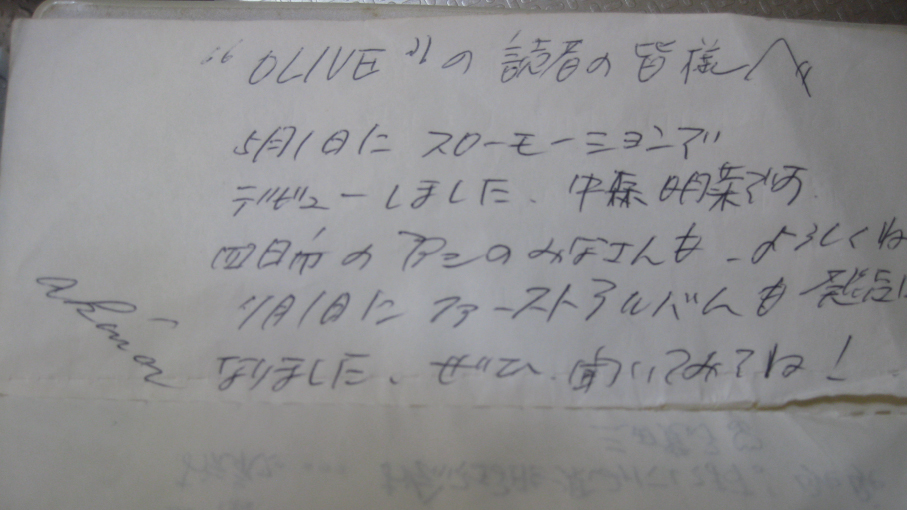 "OLIVE"の読者の皆様へ
5月1日にスローモーションで
デビューしました、中森明菜です.
四日市のファンのみなさんも、よろしくね
7月1日にファーストアルバムも発売に
なりました、ぜひ、聞いてみてね!
akina